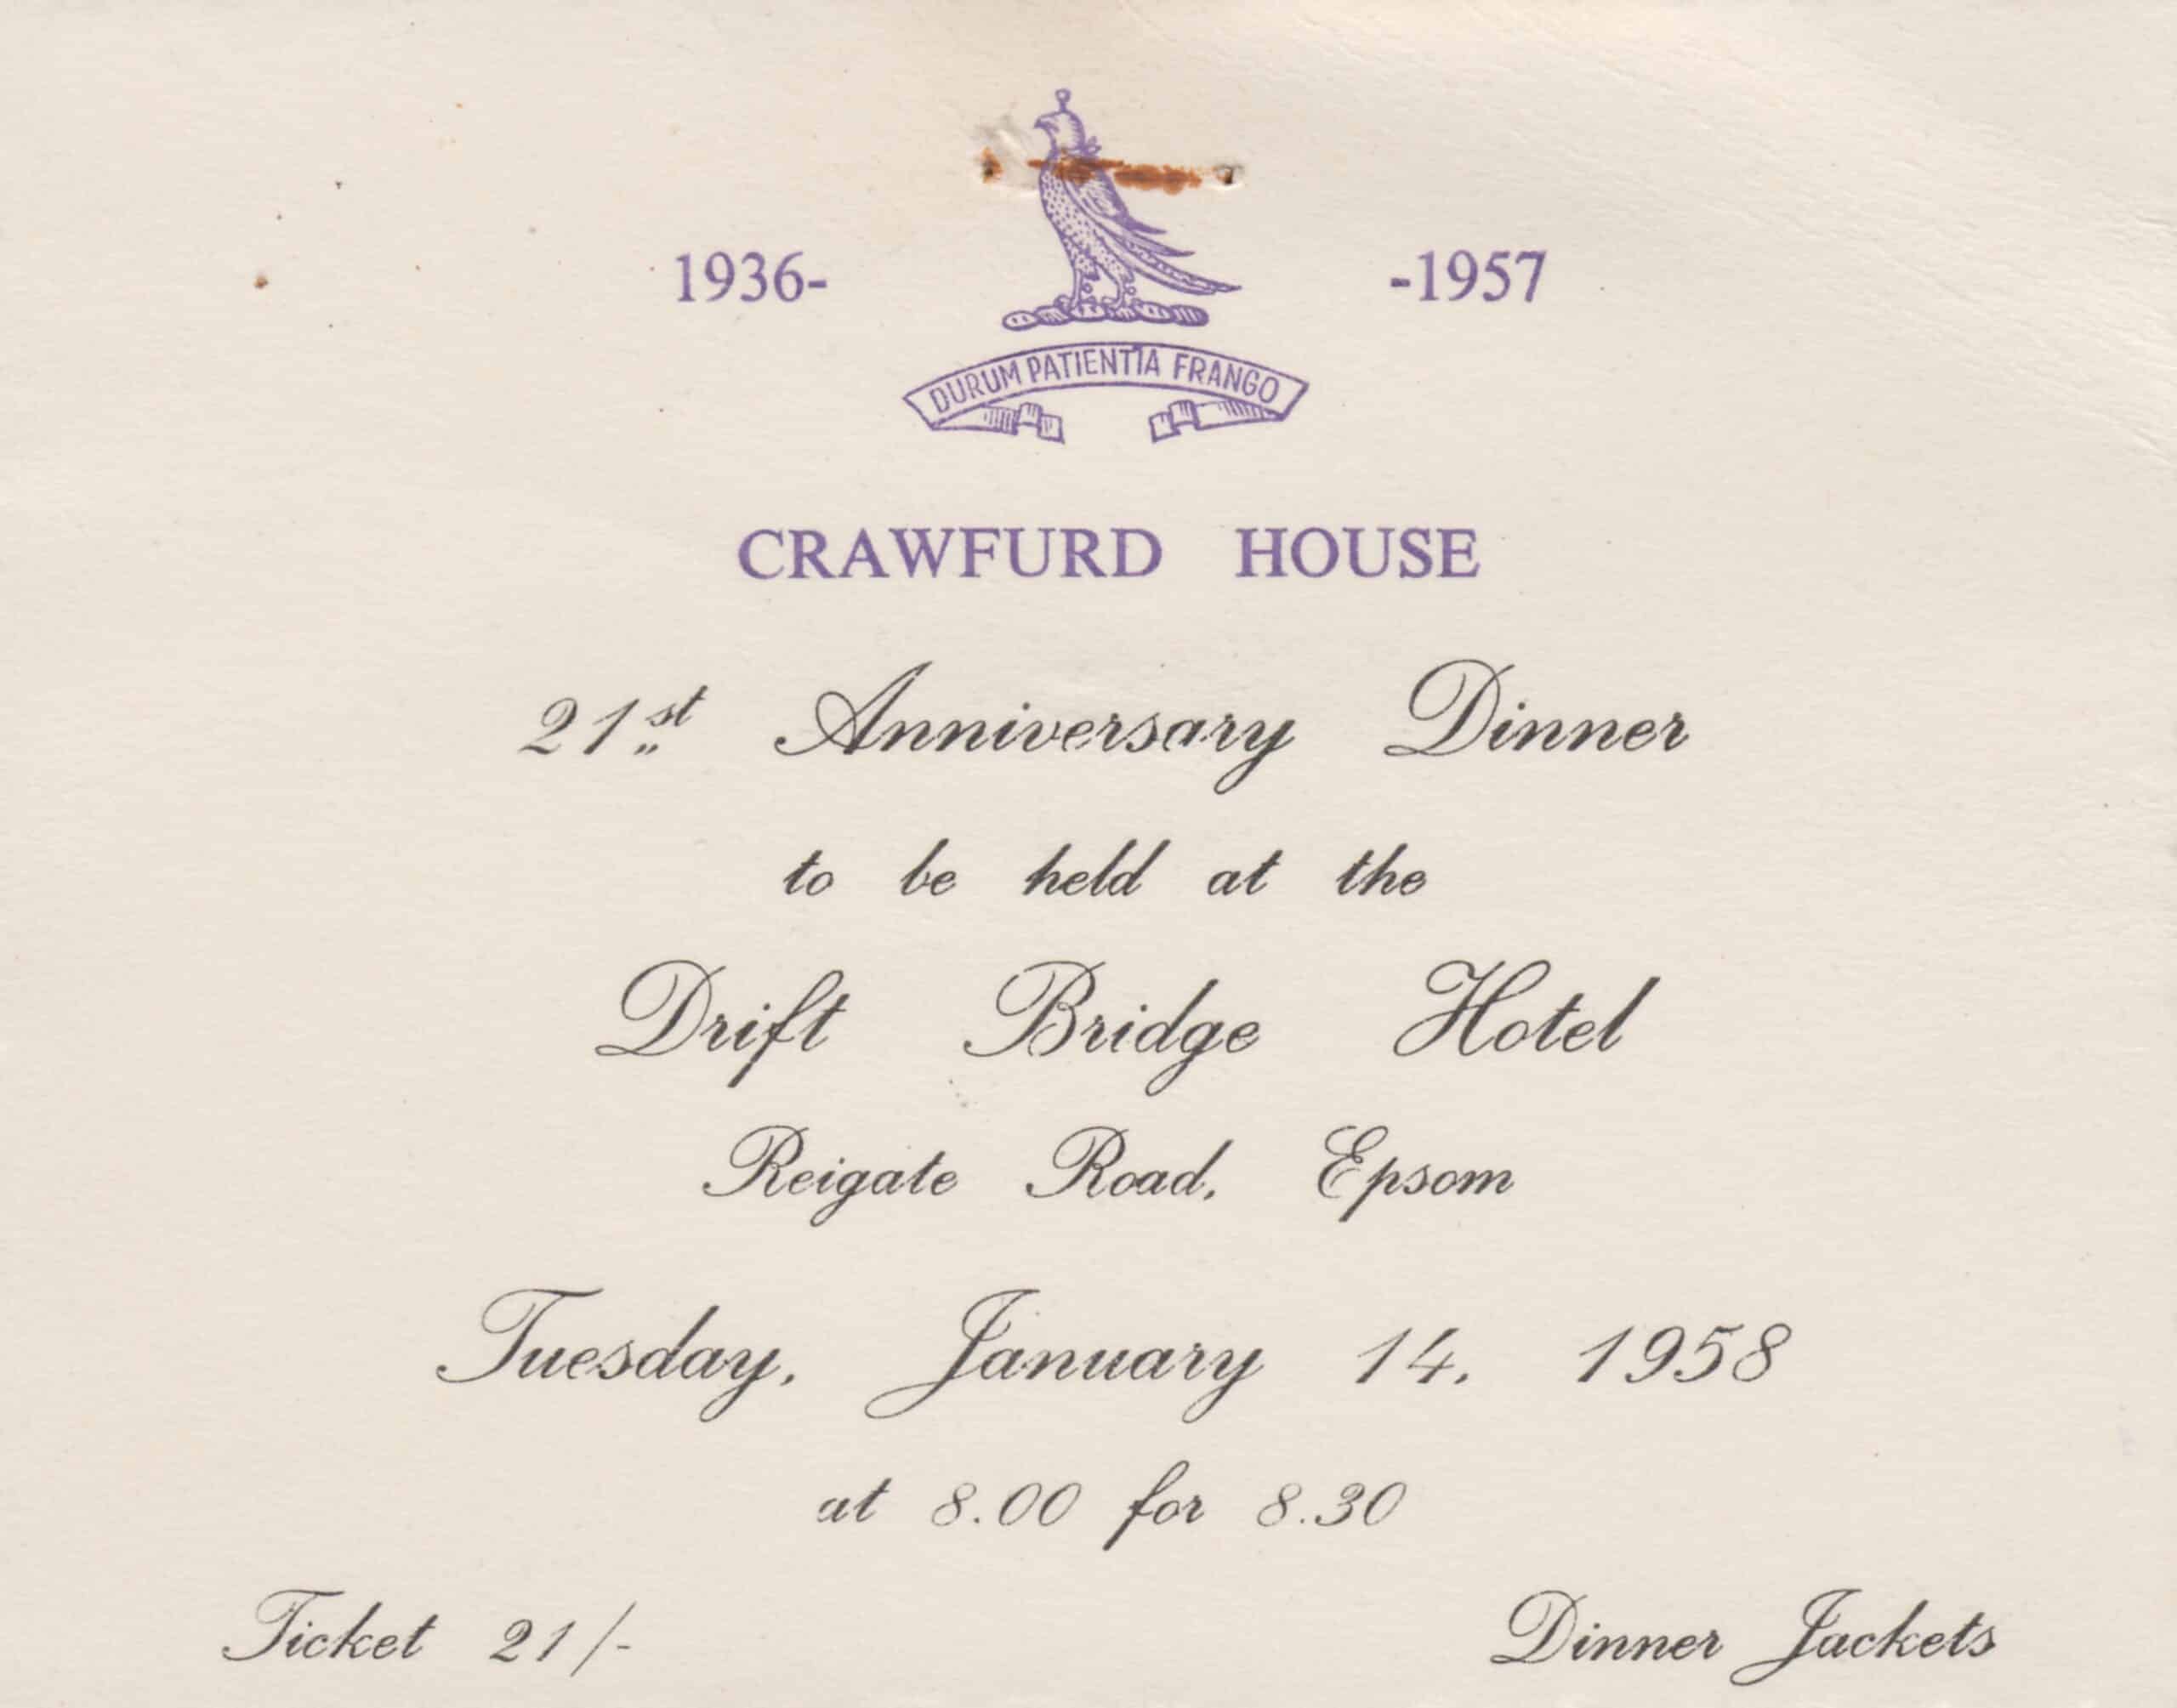 1936- -1957
DURUM PATIENTIA FRANGO
CRAWFURD HOUSE
21st Anniversary Dinner
to be held at the
Drift Bridge Hotel
Reigate Road, Epsom
Tuesday, January 14, 1958
at 8.00 for 8.30
Ticket 21/- Dinner Jackets